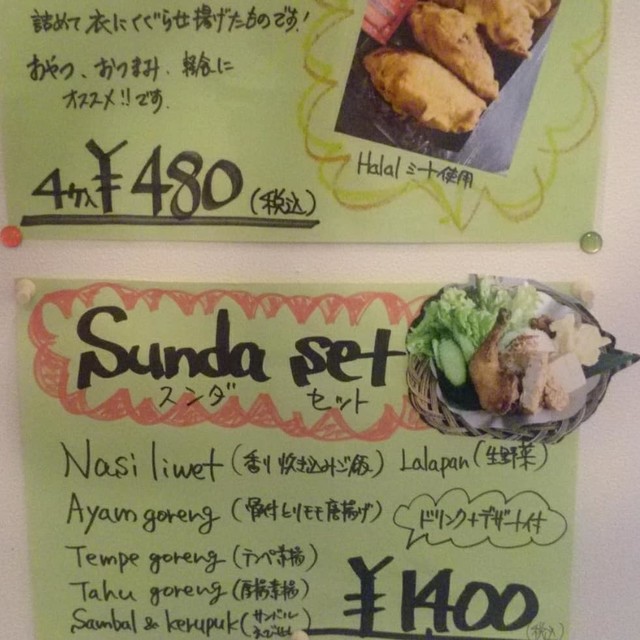 詰めて衣にくぐらせ揚げたものです!
おやつ、おつまみ、軽食に
オススメ!!です.
4ヶ入 ¥480(税込)
Halal ミート使用
Sunda set
スンダ セット
Nasi liwet (香り炊き込みご飯) Lalapan (生野菜)
Ayam goreng (骨付とりモモ唐揚げ)
ドリンク+デザート付
Tempe goreng (テンペ素揚)
Tahu goreng (厚揚素揚)
Sambal & kerupuk (サンバル
¥1400
(税込)